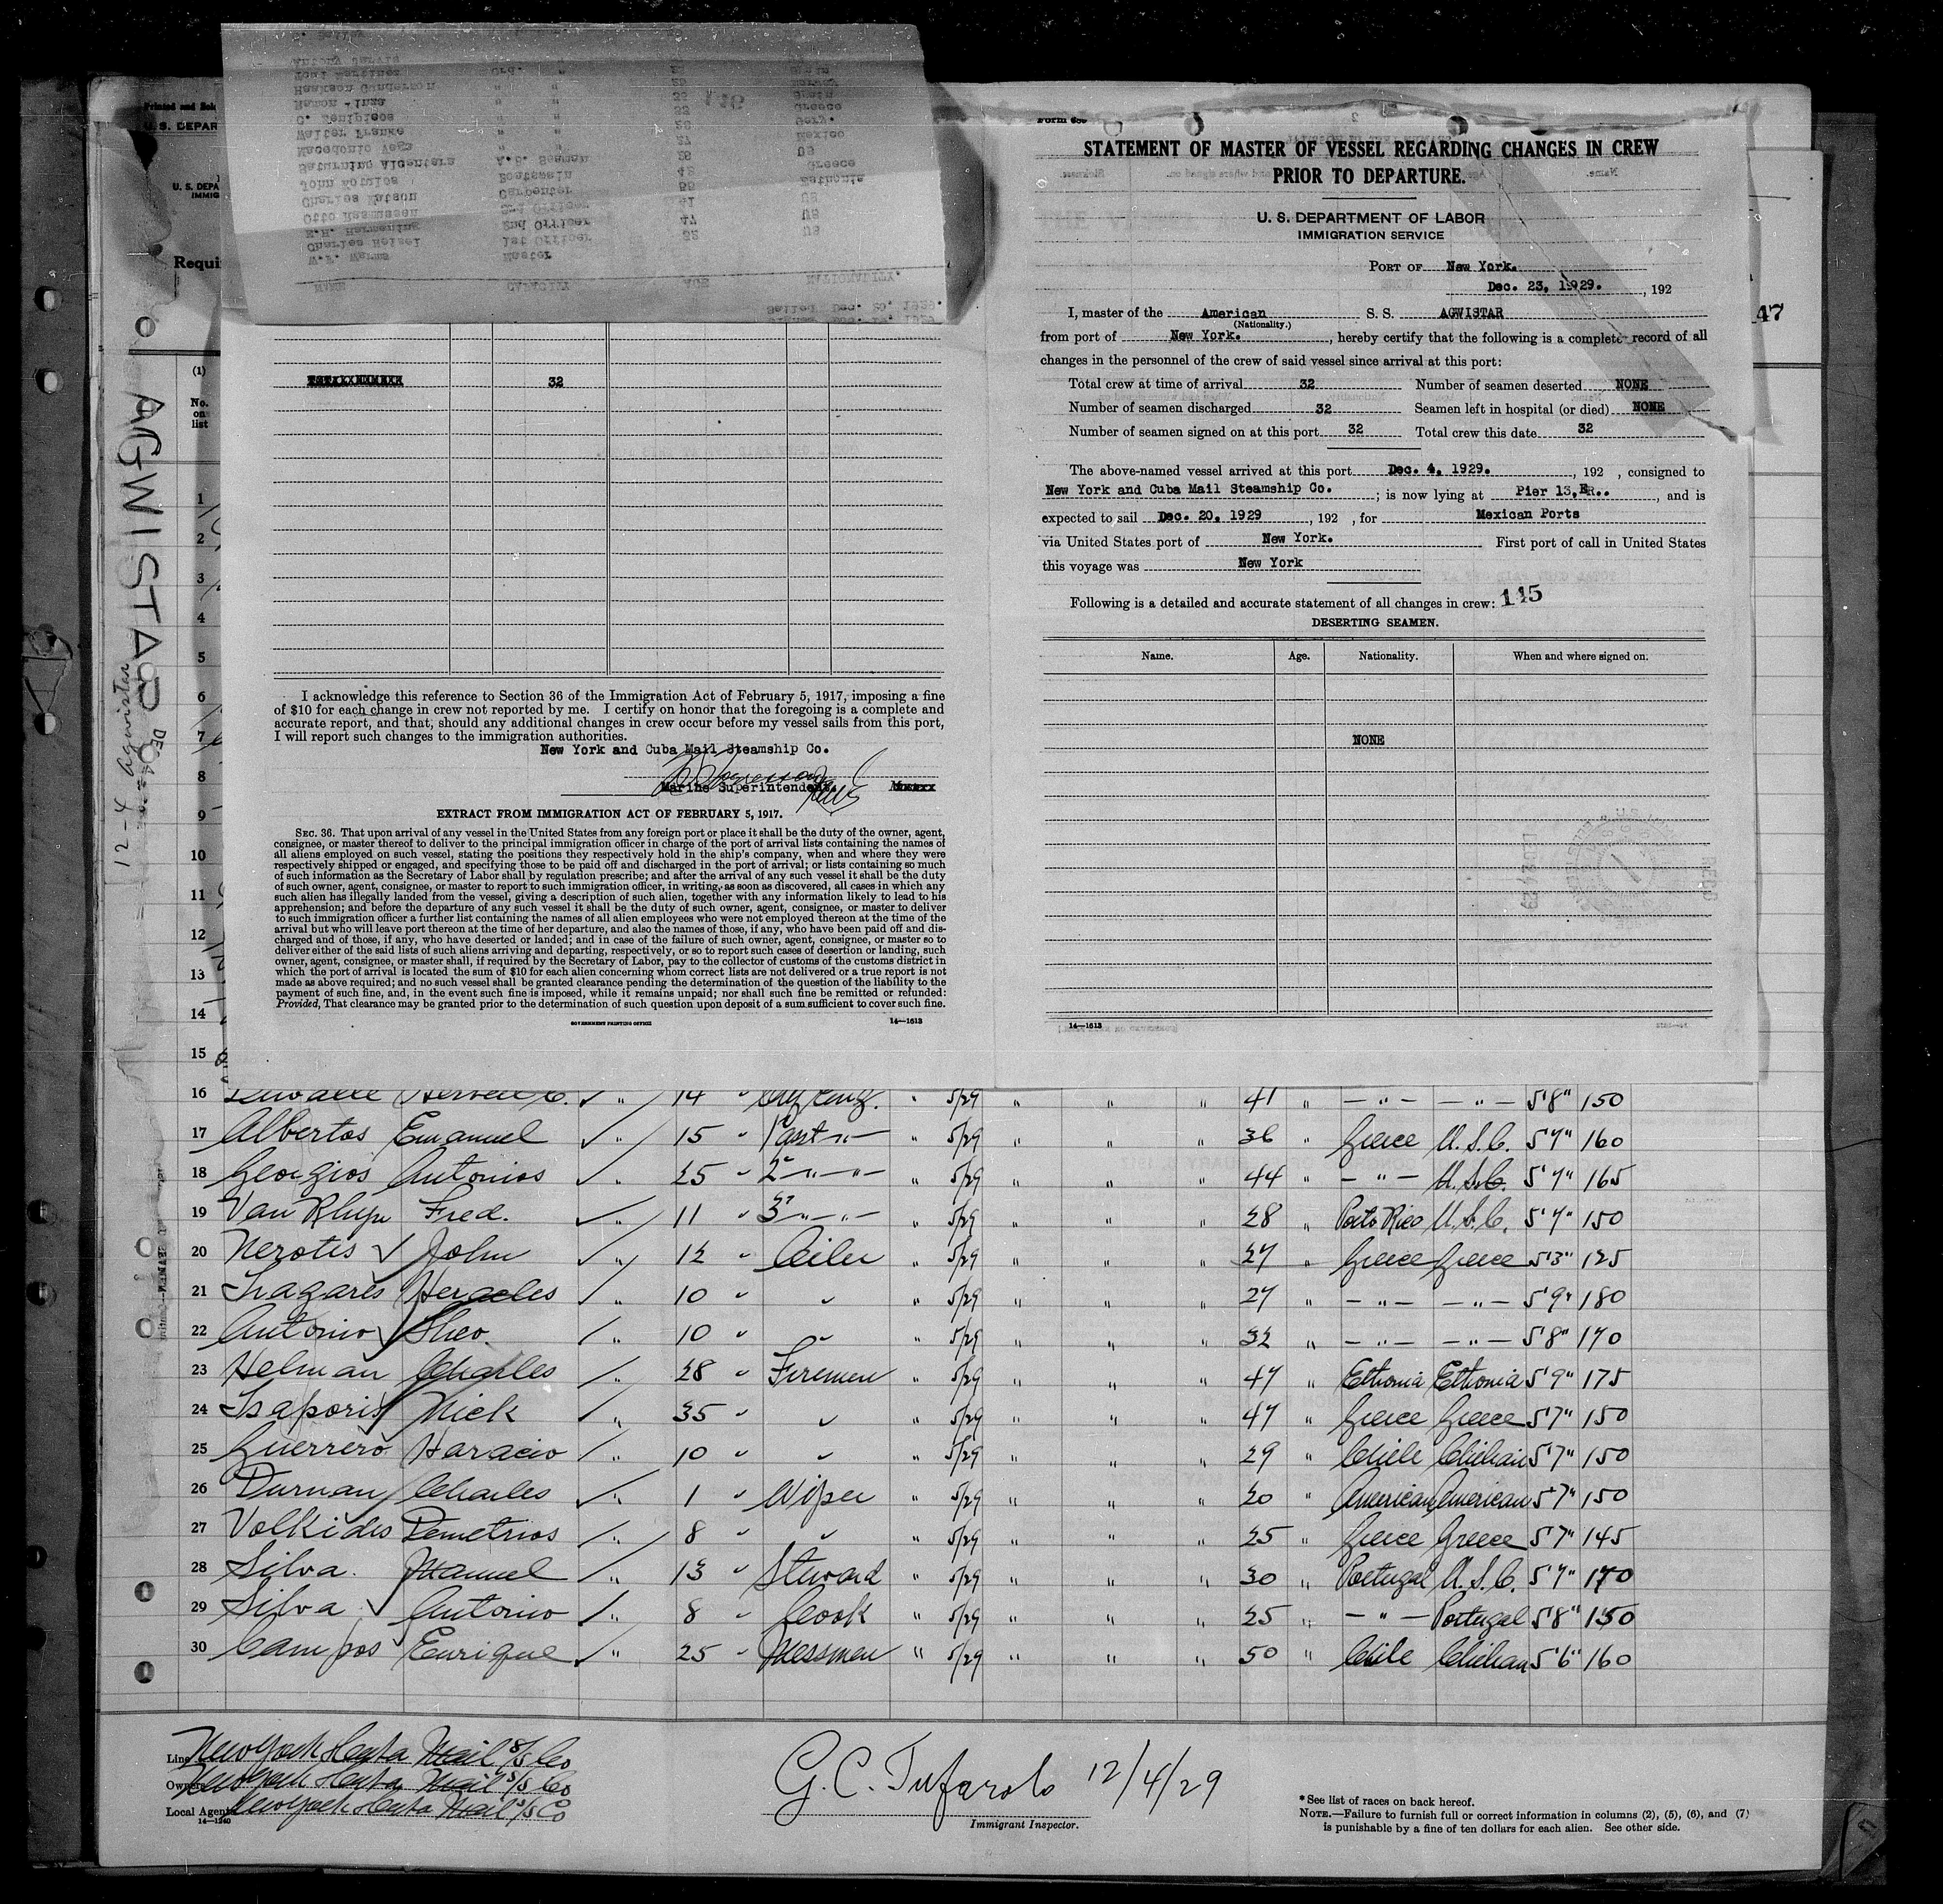 Printed and Sol
U. S. DEPAR
U. S. DEPA
IMMIG
Requi
(1)
No. on list
AGWISTAR
DEC 4
12-4 Agwistar
47
W.F. Warms Master
Charles Heisel 1st Officer 32 US
E.H. Harmening 2nd Officer 47 US
Otto Rasmussen 3rd Officer 41 US
Charles Matson Carpenter 55 Esthonia
John Kotulos Boatswain 48 Greece
Saturnino Alcantera A.B. Seaman 28 US
Macedonio Vega " " 27 Mexico
Walter Franke " " 26 Gery.
C. Senipicos " " 33 Greece
Ramon Inza " " 35 Spain
Haakson Gunderson " " 25 Norway
Toni Martinez Ord. "
NAME CAPACITY AGE NATIONALITY.
Sailed Dec. 23, 1929.
TOTAL 32
I acknowledge this reference to Section 36 of the Immigration Act of February 5, 1917, imposing a fine
of $10 for each change in crew not reported by me. I certify on honor that the foregoing is a complete and
accurate report, and that, should any additional changes in crew occur before my vessel sails from this port,
I will report such changes to the immigration authorities.
New York and Cuba Mail Steamship Co.
Marine Superintendent.
EXTRACT FROM IMMIGRATION ACT OF FEBRUARY 5, 1917.
SEC. 36. That upon arrival of any vessel in the United States from any foreign port or place it shall be the duty of the owner, agent,
consignee, or master thereof to deliver to the principal immigration officer in charge of the port of arrival lists containing the names of
all aliens employed on such vessel, stating the positions they respectively hold in the ship's company, when and where they were
respectively shipped or engaged, and specifying those to be paid off and discharged in the port of arrival; or lists containing so much
of such information as the Secretary of Labor shall by regulation prescribe; and after the arrival of any such vessel it shall be the duty
of such owner, agent, consignee, or master to report to such immigration officer, in writing, as soon as discovered, all cases in which any
such alien has illegally landed from the vessel, giving a description of such alien, together with any information likely to lead to his
apprehension; and before the departure of any such vessel it shall be the duty of such owner, agent, consignee, or master to deliver
to such immigration officer a further list containing the names of all alien employees who were not employed thereon at the time of the
arrival but who will leave port thereon at the time of her departure, and also the names of those, if any, who have been paid off and dis-
charged and of those, if any, who have deserted or landed; and in case of the failure of such owner, agent, consignee, or master so to
deliver either of the said lists of such aliens arriving and departing, respectively, or so to report such cases of desertion or landing, such
owner, agent, consignee, or master shall, if required by the Secretary of Labor, pay to the collector of customs of the customs district in
which the port of arrival is located the sum of $10 for each alien concerning whom correct lists are not delivered or a true report is not
made as above required; and no such vessel shall be granted clearance pending the determination of the question of the liability to the
payment of such fine, and, in the event such fine is imposed, while it remains unpaid; nor shall such fine be remitted or refunded:
Provided, That clearance may be granted prior to the determination of such question upon deposit of a sum sufficient to cover such fine.
GOVERNMENT PRINTING OFFICE 14—1613
Form 689
STATEMENT OF MASTER OF VESSEL REGARDING CHANGES IN CREW
PRIOR TO DEPARTURE.
U. S. DEPARTMENT OF LABOR
IMMIGRATION SERVICE
PORT OF New York.
Dec. 23, 1929. , 192
I, master of the American S. S. AGWISTAR
(Nationality.)
from port of New York. , hereby certify that the following is a complete record of all
changes in the personnel of the crew of said vessel since arrival at this port:
Total crew at time of arrival 32 Number of seamen deserted NONE
Number of seamen discharged 32 Seamen left in hospital (or died) NONE
Number of seamen signed on at this port 32 Total crew this date 32
The above-named vessel arrived at this port Dec. 4, 1929. , 192 , consigned to
New York and Cuba Mail Steamship Co. ; is now lying at Pier 13, ER.. , and is
expected to sail Dec. 20, 1929 , 192 , for Mexican Ports
via United States port of New York. First port of call in United States
this voyage was New York
Following is a detailed and accurate statement of all changes in crew: 115
DESERTING SEAMEN.
Name. Age. Nationality. When and where signed on.
NONE
14—1613
1
2
3
4
5
6
7
8
9
10
11
12
13
14
15
16 14 " 5/29 " " " 41 " — " — — " — 5'8" 150
17 Albertos Emanuel ✓ " 15 " 1 asst " " 5/29 " " " 36 " Greece U.S.C. 5'7" 160
18 Georgios Antonios ✓ " 25 " 2 " " 5/29 " " " 44 " — " — U.S.C. 5'7" 165
19 Van Rhyn Fred. ✓ " 11 " 3 " " 5/29 " " " 28 " Porto Rico U.S.C. 5'7" 150
20 Nerotis John ✓ " 12 " Oiler " 5/29 " " " 27 " Greece Greece 5'3" 125
21 Tragares Heracles ✓ " 10 " " " 5/29 " " " 27 " — " — — " — 5'9" 180
22 Antonio Theo. ✓ " 10 " " " 5/29 " " " 32 " — " — — " — 5'8" 170
23 Helman Charles ✓ " 28 " Firemen " 5/29 " " " 47 " Ethonia Ethonia 5'9" 175
24 Tsaporis Nick ✓ " 35 " " " 5/29 " " " 47 " Greece Greece 5'7" 150
25 Guerrero Haracio ✓ " 10 " " " 5/29 " " " 29 " Chile Chilean 5'7" 150
26 Durnan Charles ✓ " 1 " Wiper " 5/29 " " " 20 " American American 5'7" 150
27 Volkides Demetrios ✓ " 8 " " " 5/29 " " " 25 " Greece Greece 5'7" 145
28 Silva. Manuel ✓ " 13 " Steward " 5/29 " " " 30 " Portugal U.S.C. 5'7" 170
29 Silva Antonio ✓ " 8 " Cook " 5/29 " " " 25 " — " — Portugal 5'8" 150
30 Campos Enrique ✓ " 25 " Messmen " 5/29 " " " 50 " Chile Chilean 5'6" 160
Line New York & Cuba Mail S/S Co
Owners New York & Cuba Mail S/S Co
Local Agents New York & Cuba Mail S/S Co
14—1240
G. C. Tufarolo 12/4/29
Immigrant Inspector.
* See list of races on back hereof.
NOTE.—Failure to furnish full or correct information in columns (2), (5), (6), and (7)
is punishable by a fine of ten dollars for each alien. See other side.